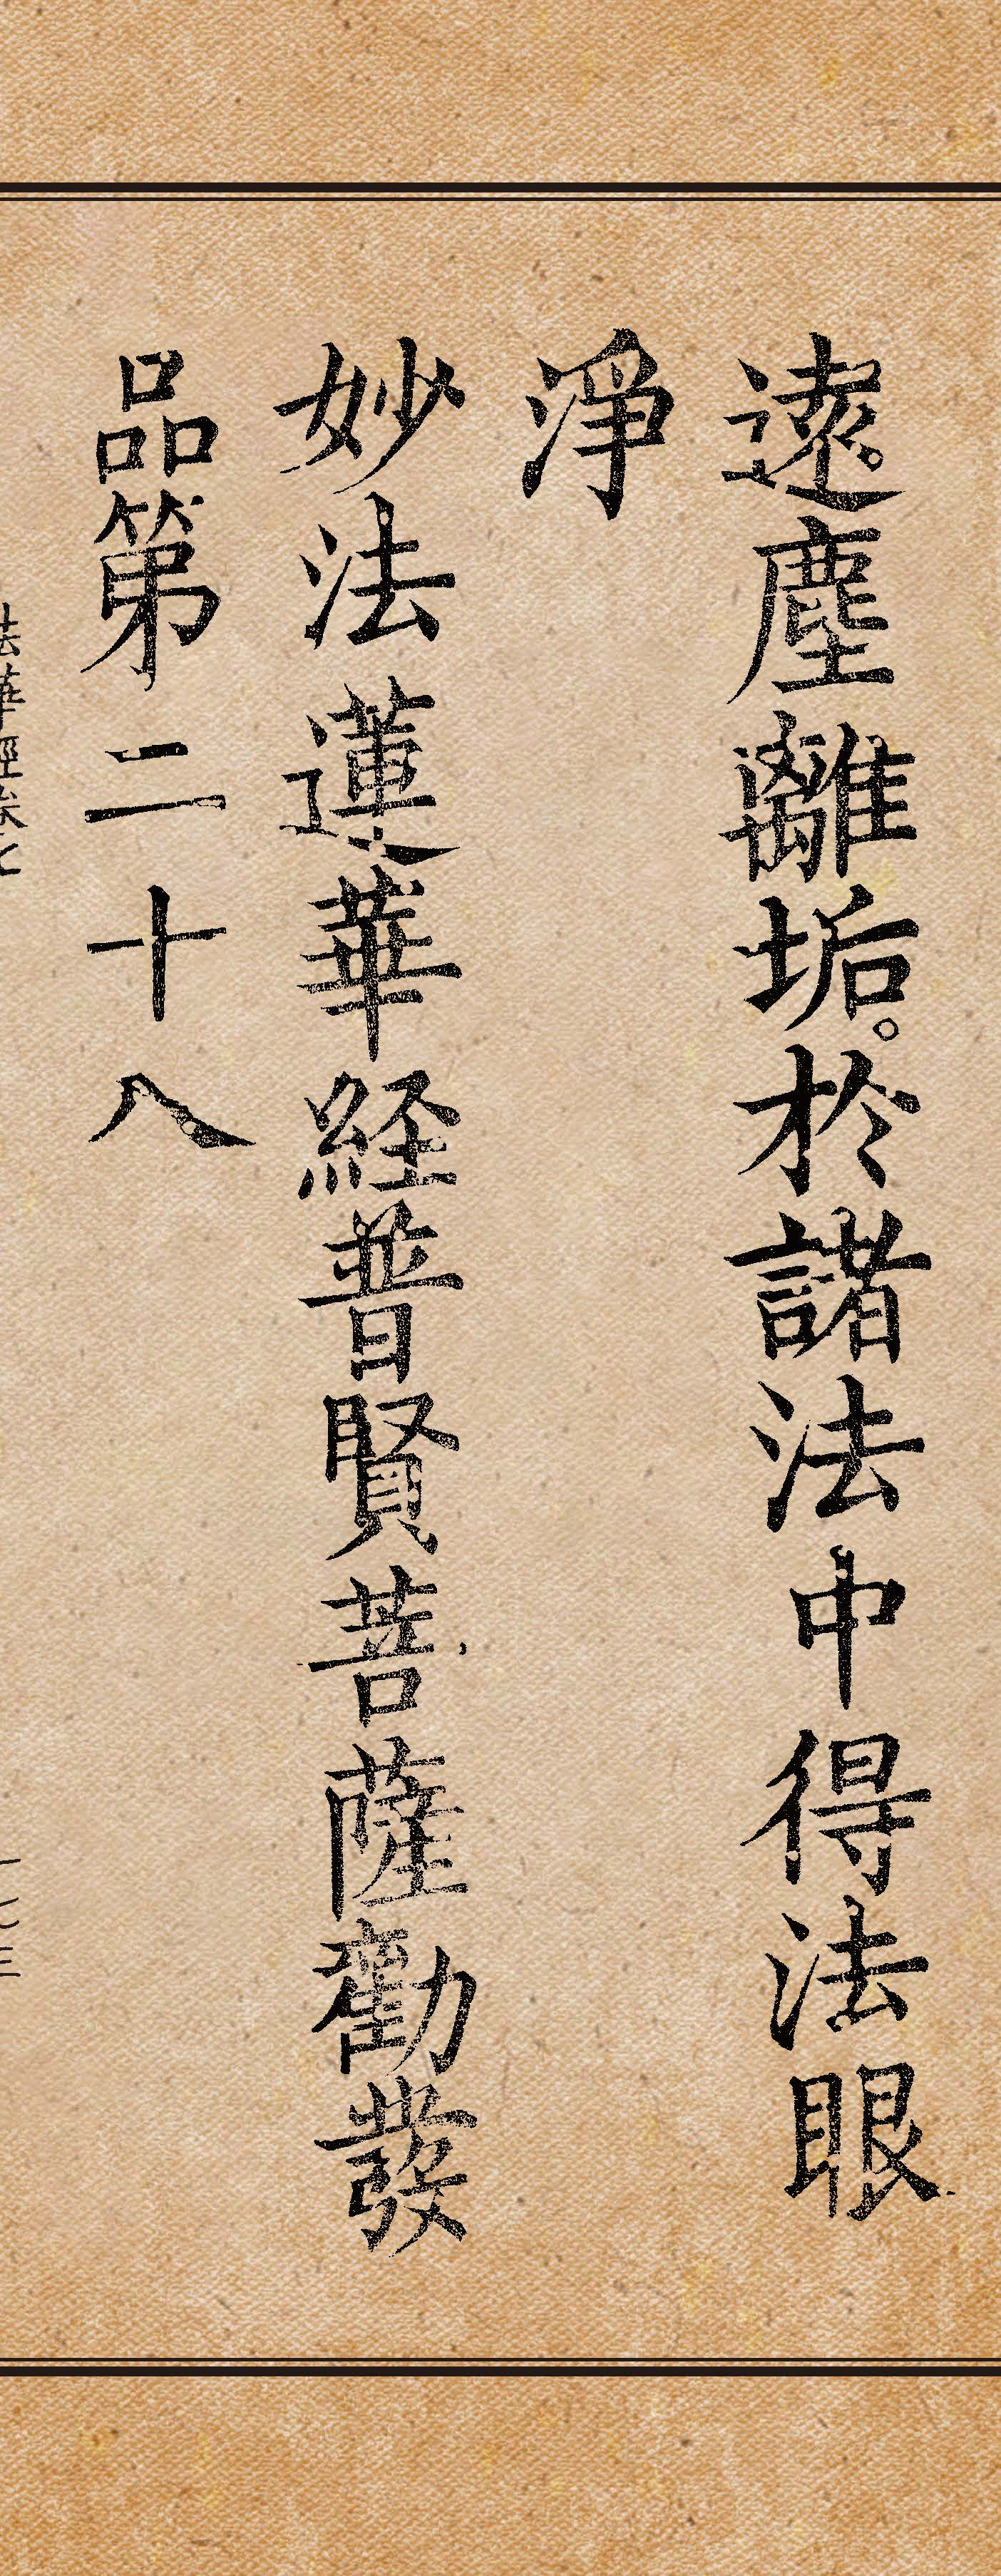 遠塵離垢。於諸法中得法眼
淨
妙法蓮華経普賢菩薩勸發
品第二十八
法華經卷七
一七三